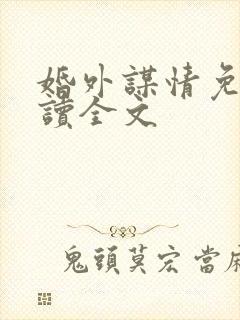 婚外謀情免
讀全文
鬼頭莫宏當